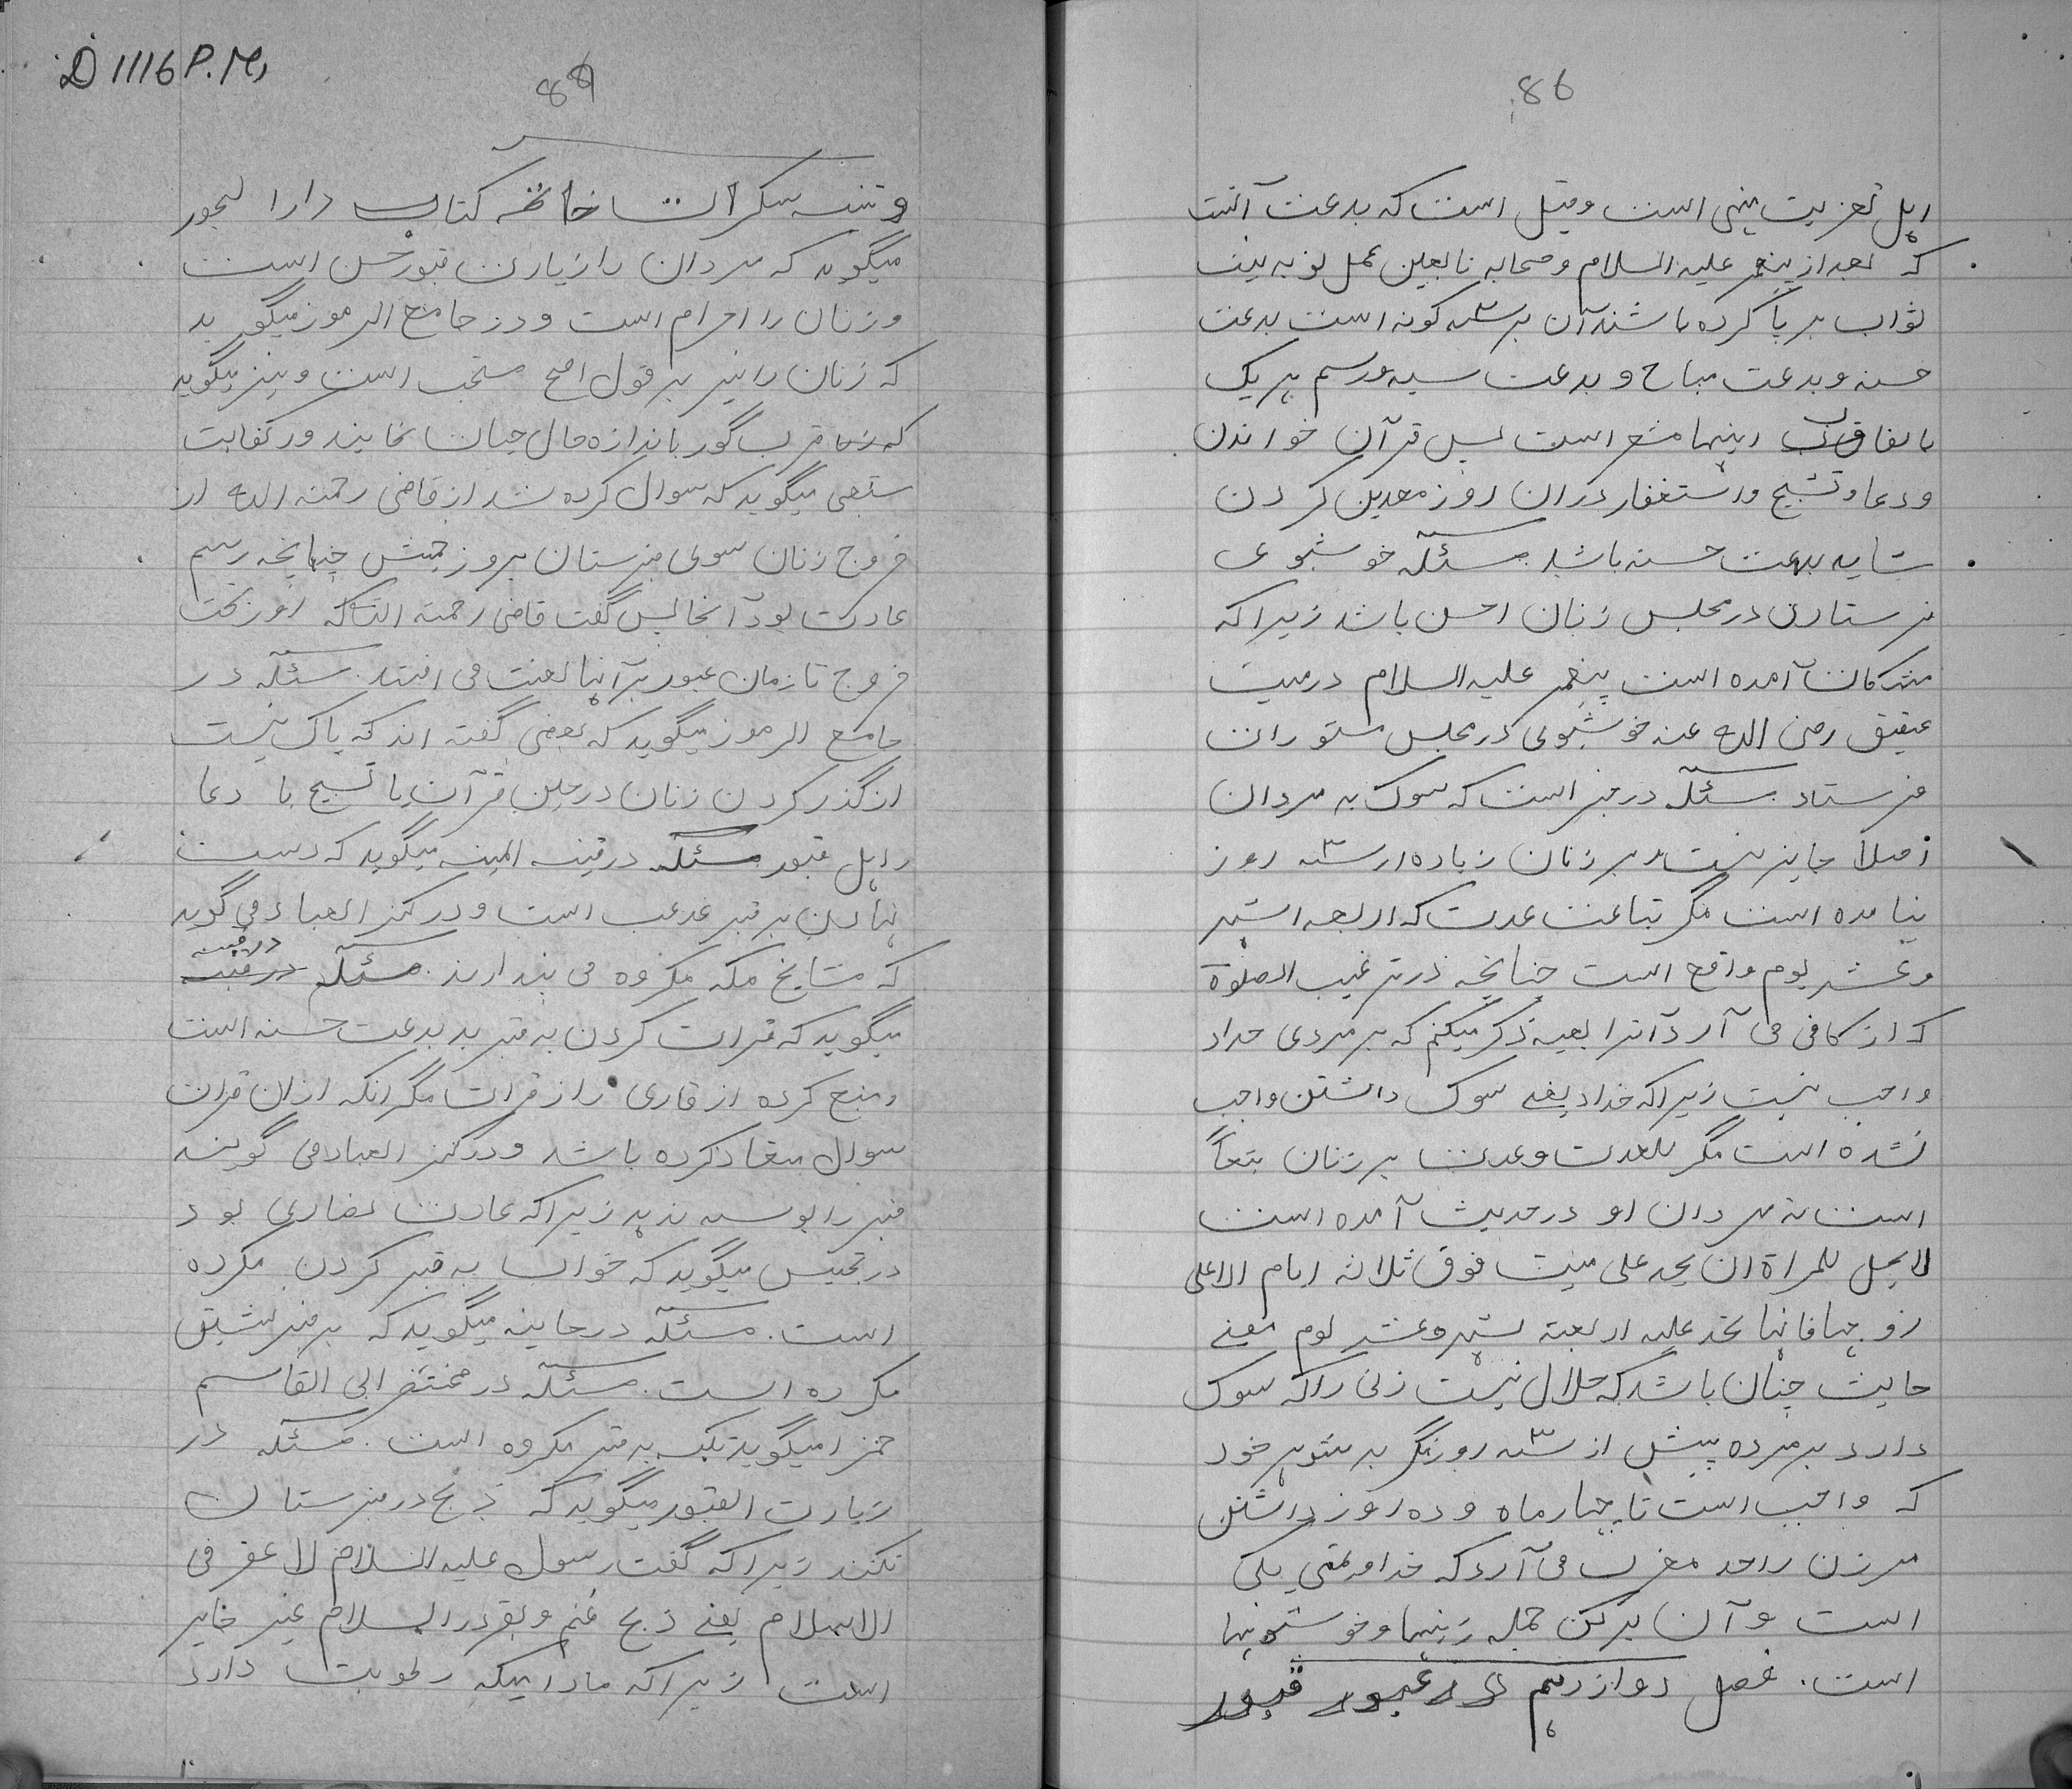 86
اہل تعزیت منہی است وقیل است کہ بدعت آنست
کہ بعد از پیغمبر علیہ السلام وصحابہ تابعین عمل نو بہ نیت
ثواب بر پا کردہ باشند آن بر سہ گونہ است بدعت
حسنہ و بدعت مباح و بدعت سیہ ورسم ہر یک
باتفاق اینہا منع است پس قرآن خواندن
ودعا وتسبیح واستغفار دران روز معین کردن
شاید بدعت حسنہ باشد. مسئلہ خوشبوی
فرستادن در مجلس زنان احسن باشد زیراکہ
آمدہ است پیغمبر علیہ السلام درمیت
عقیق رضی اللہ عنہ خوشبوی در مجلس مستورات
فرستاد. مسئلہ در خبر است کہ سوک بہ مردان
اصلا جایز نیست و بر زنان زیادہ از سہ روز
نیامدہ است مگر عدت کہ اربعہ اشہر
وعشر یوم واقع است چنانچہ در ترغیب الصلوۃ
کہ از کافی می آرد آنرا بعینہ ذکر میکنم کہ بر مردی حداد
واجب نیست زیراکہ حداد یعنے سوک داشتن واجب
نشدہ است مگر للعدت وعدت بر زنان تبعاً
است نہ مردان او در حدیث آمدہ است
لا یحل للمراۃ ان یحد علی میت فوق ثلاثہ ایام الا علی
زوجہا فانہا تحد علیہ اربعتہ شہر وعشر یوم معنے
حدیث چنان باشد کہ حلال نیست زنی را کہ سوک
دارد بر مردہ بیش از سہ روز مگر بر شوہر خود
کہ واجب است تا چہار ماہ و دہ روز داشتن
مر زن را در مغرب می آرد کہ یکی
است و آن ترک جملہ زینہا وخوشبویہا
است. فصل دوازدہم در عبور قبور
D 1116 P.M,
88
خاتمہ کتاب دارا لبحور
میگوید کہ مردان را زیارت قبور حسن است
وزنان را حرام است ودر جامع الرموز میگوید
کہ زنان را نیز بر قول اصح مستحب است ونیز میگوید
کہ قرب گور باندازہ حال حیات نمایند ودر کفایت
شعبی میگوید کہ سوال کردہ شد از قاضی رحمتہ اللہ از
خروج زنان سوی قبرستان بروز چنانچہ رسم
عادت بود آنجا پس گفت قاضی رحمتہ اللہ کہ از وقت
خروج تا زمان عبور برآنہا لعنت می افتد. مسئلہ در
جامع الرموز میگوید کہ بعضی گفتہ اند کہ باک نیست
از گذر کردن زنان در حین قرآن یا تسبیح یا دعا
اہل قبور مسئلہ در قنیہ المنیہ میگوید کہ دست
نہادن بر قبر بدعت است ودر کنز العباد می گوید
کہ مشایخ مکہ مکروہ می پندارند. مسئلہ در قنیہ
میگوید کہ قرات کردن بہ قبر بدعت حسنہ است
ومنع کردہ از قاری را از قرات مگر انکہ ازان قران
سوال کردہ باشد ودر کنز العباد می گوید
قبر را بوسہ ندہد زیراکہ عادت نصاری بود
در تجنیس میگوید کہ خواب بہ قبر کردن مکروہ
است. مسئلہ در میگوید کہ بر قبر نشستن
مکروہ است. مسئلہ در مختصر ابی القاسم
میگوید تکیہ بر قبر مکروہ است. مسئلہ در
زیارت القبور میگوید کہ ذبح در قبرستان
نکنند زیراکہ گفت رسول علیہ السلام لا عقر فی
الاسلام یعنے ذبح غنم وبقر در اسلام غیر جایز
است زیراکہ مادامیکہ رطوبت دارد